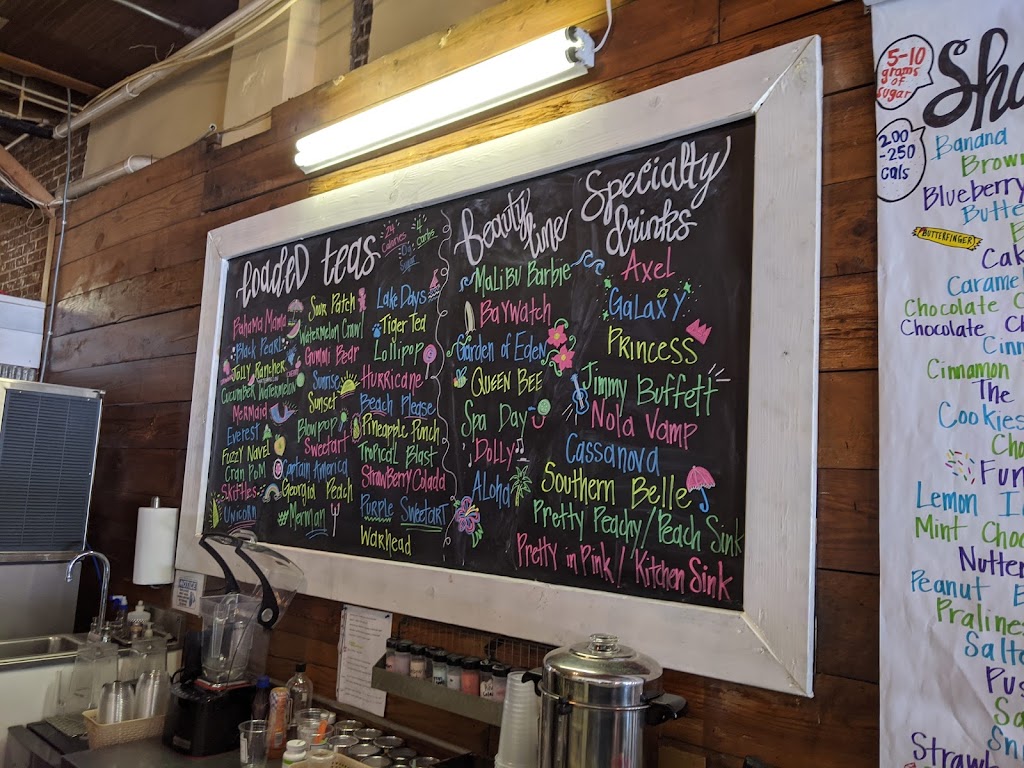 Loaded Teas
24 calories
4 carbs
Bahama Mama
Black Pearl
Jolly Rancher
Cucumber Watermelon
Mermaid
Everest
Fuzzy Navel
Cran Pom
Skittles
Unicorn
Sour Patch
Watermelon Crawl
Gummi Bear
Sunrise
Sunset
Blowpop
Sweetart
Captain America
Georgia Peach
Merman
Lake Days
Tiger Tea
Lollipop
Hurricane
Beach Please
Pineapple Punch
Tropical Blast
Strawberry Colada
Purple Sweetart
Warhead
Beauty Line
Malibu Barbie
Baywatch
Garden of Eden
Queen Bee
Spa Day
Dolly
Aloha
Specialty
drinks
Axel
Galaxy
Princess
Jimmy Buffett
Nola Vamp
Cassanova
Southern Belle
Pretty Peachy/Beach Sink
Pretty in Pink/Kitchen Sink
5-10
grams
of
sugar
Sha
200
-250
cals
Banana
Brown
Blueberry
Butte
BUTTERFINGER
Cak
Carame
Chocolate C
Chocolate Ch
Cinn
Cinnamon
The
Cookies
Cho
Fun
Lemon I
Mint Choc
Nutter
Peanut B
Pralines
Salte
Pus
Sa
Sn
Strawb